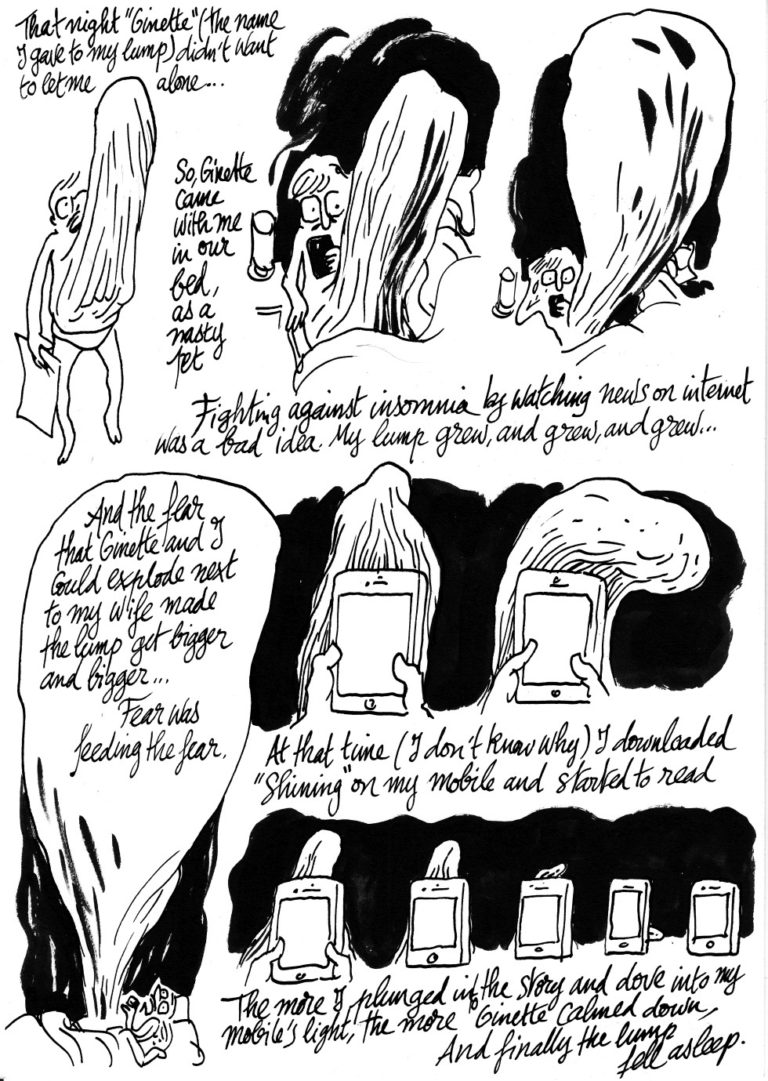 That night "Ginette" (the name
I gave to my lump) didn't want
to let me alone...
So, Ginette
came
with me
in our
bed,
as a
nasty
pet
Fighting against insomnia by watching news on internet
was a bad idea. My lump grew, and grew, and grew...
And the fear
that Ginette and I
could explode next
to my wife made
the lump get bigger
and bigger...
Fear was
feeding the fear.
At that time (I don't know why) I downloaded
"Shining" on my mobile and started to read
The more I plunged in the story and dove into my
mobile's light, the more Ginette calmed down,
And finally the lump
fell asleep.